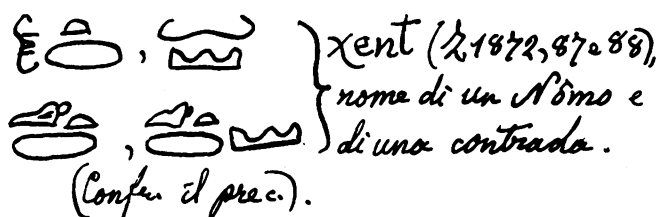 χent (Z 1872, 87 e 88),
nome di un Nômo e
di una contrada.
(Confr. il prec.).